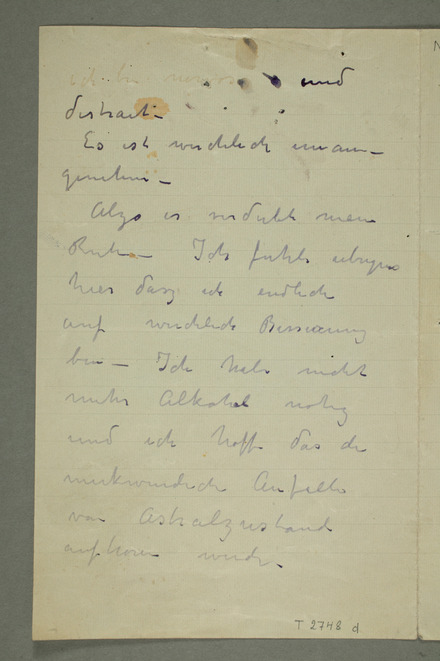 ich bin nervos und
distrait –
Es ist wirklich unan–
genehm –
Alzo es verdirbt meine
Ruhe – Ich fuhle ubrigens
hier dasz ich endlich
auf wirkliche Besserung
bin – Ich habe nicht
mehr Alkohol notig
und ich hoffe das die
merkwurdige Anfelle
von Astralzustand
aufhoren wird. –
T 2748 d